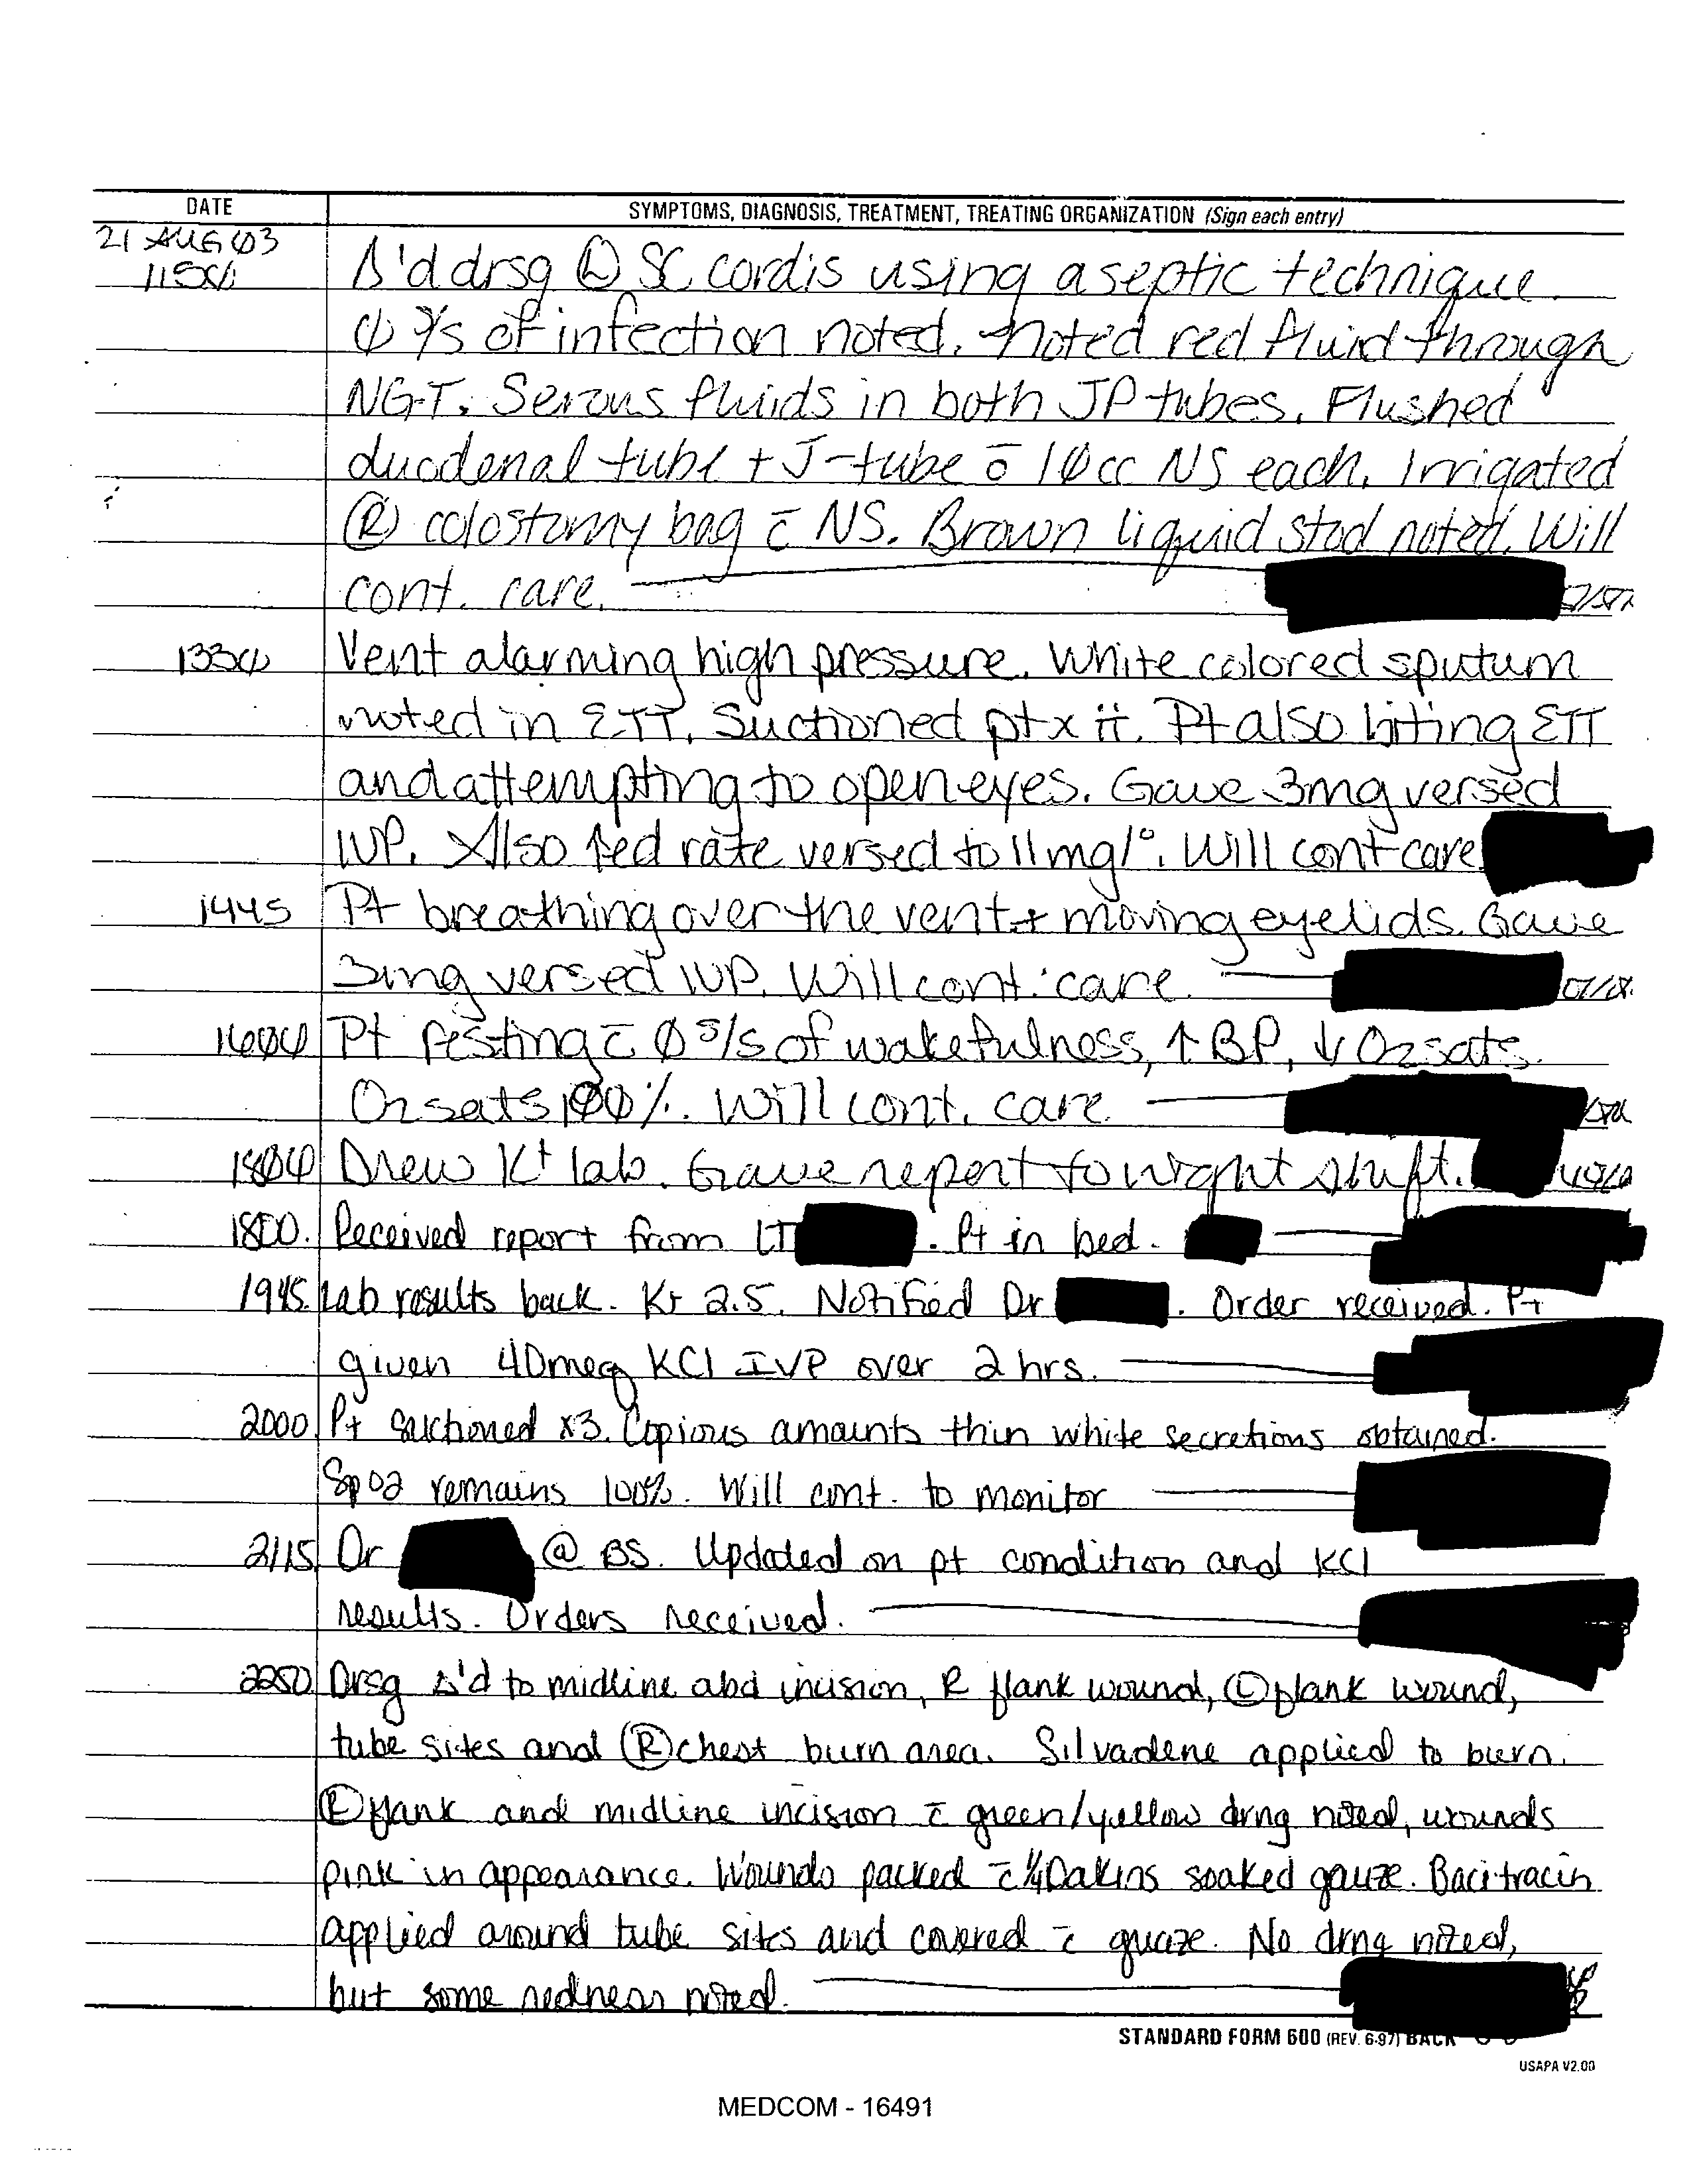 DATE
SYMPTOMS, DIAGNOSIS, TREATMENT, TREATING ORGANIZATION (Sign each entry)
21 AUG 03
1150 Δ'd drsg Ⓛ SC cordis using aseptic technique.
Ø s/s of infection noted. Noted red fluid through
NGT. Serous fluids in both JP tubes. Flushed
duodenal tube + J-tube c̄ 10cc NS each. Irrigated
Ⓡ colostomy bag c̄ NS. Brown liquid stool noted. Will
cont. care.
1330 Vent alarming high pressure. White colored sputum
noted in ETT. Suctioned pt x ii. Pt also biting ETT
and attempting to open eyes. Gave 3mg versed
IVP. Also ted rate versed to 11mg/°. Will cont care
1445 Pt breathing over the vent + moving eyelids. Gave
3mg versed IVP. Will cont. care.
1600 Pt resting c̄ Ø s/s of wakefulness, ↑ BP, ↓ O2 sats.
O2 sats 100%. Will cont. care
1800 Drew K+ lab. Gave report to night shift.
1800. Received report from LT . Pt in bed.
1945. Lab results back. K+ 2.5. Notified Dr . Order received. Pt
given 40meq KCl IVP over 2 hrs.
2000 Pt suctioned x3. Copious amounts thin white secretions obtained.
SpO2 remains 100%. Will cont. to monitor
2115 Dr @ BS. Updated on pt condition and KCl
results. Orders received.
2250 Drsg Δ'd to midline abd incision, R flank wound, Ⓛ flank wound,
tube sites and Ⓡ chest burn area. Silvadene applied to burn.
flank and midline incision c̄ green/yellow drng noted, wounds
pink in appearance. Wounds packed c̄ ¼ Dakins soaked gauze. Bacitracin
applied around tube sites and covered c̄ guaze. No drng noted,
but some redness noted.
STANDARD FORM 600 (REV. 6-97) BACK
USAPA V2.00
MEDCOM - 16491